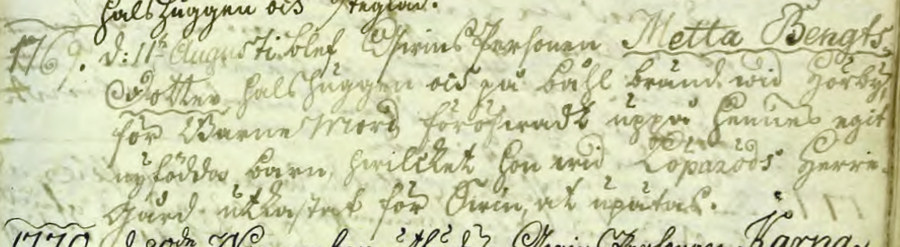 halshuggen och steglad.
1769. d: 11te Augusti blef Qwins Personen Metta Bengts
Dotter halshuggen och på båhl bränd wid Hörby,
för Barne Mord föröfwadt uppå hennes egit
nyfödda barn, hwilcket hon wid Löparöds Herre-
gård utkastat för Swin, at upätas.
1770 Qwins Personen Karna